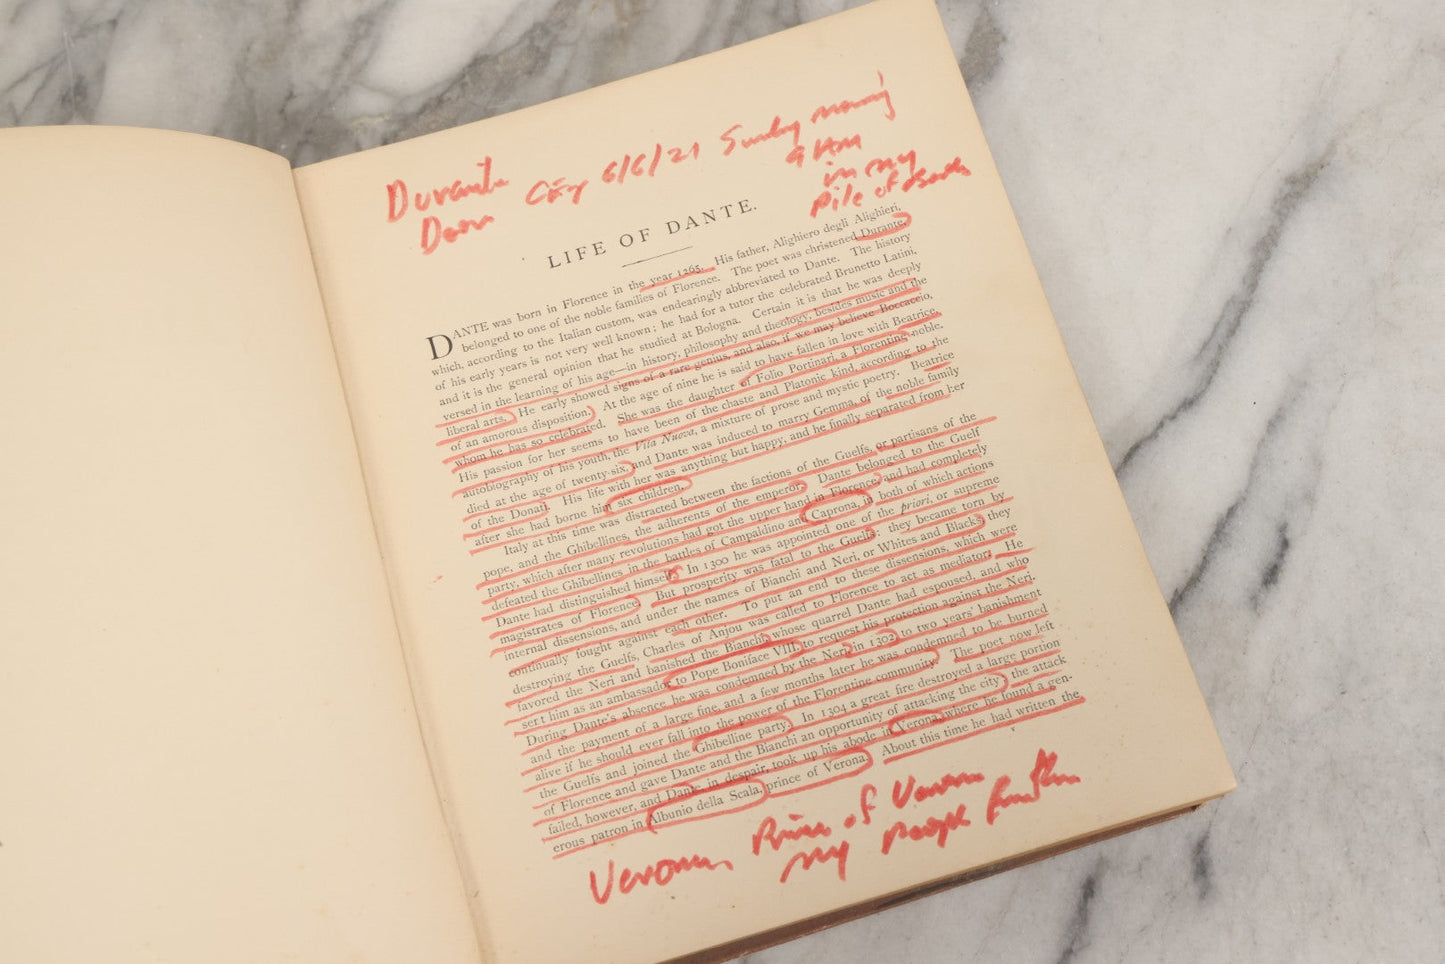 Durante
City 6/6/21 Sunday morning
9 AM
in my
pile of
LIFE OF DANTE.
DANTE was born in Florence in the year 1265. His father, Alighiero degli Alighieri,
belonged to one of the noble families of Florence. The poet was christened Durante,
which, according to the Italian custom, was endearingly abbreviated to Dante. The history
of his early years is not very well known; he had for a tutor the celebrated Brunetto Latini,
and it is the general opinion that he studied at Bologna. Certain it is that he was deeply
versed in the learning of his age—in history, philosophy and theology, besides music and the
liberal arts. He early showed signs of a rare genius, and also, if we may believe Boccaccio,
of an amorous disposition. At the age of nine he is said to have fallen in love with Beatrice,
whom he has so celebrated. She was the daughter of Folio Portinari, a Florentine noble.
His passion for her seems to have been of the chaste and Platonic kind, according to the
autobiography of his youth, the Vita Nuova, a mixture of prose and mystic poetry. Beatrice
died at the age of twenty-six, and Dante was induced to marry Gemma, of the noble family
of the Donati. His life with her was anything but happy, and he finally separated from her
after she had borne him six children.
Italy at this time was distracted between the factions of the Guelfs, or partisans of the
pope, and the Ghibellines, the adherents of the emperor. Dante belonged to the Guelf
party, which after many revolutions had got the upper hand in Florence, and had completely
defeated the Ghibellines in the battles of Campaldino and Caprona, in both of which actions
Dante had distinguished himself. In 1300 he was appointed one of the priori, or supreme
magistrates of Florence. But prosperity was fatal to the Guelfs: they became torn by
internal dissensions, and under the names of Bianchi and Neri, or Whites and Blacks, they
continually fought against each other. To put an end to these dissensions, which were
destroying the Guelfs, Charles of Anjou was called to Florence to act as mediator. He
favored the Neri and banished the Bianchi, whose quarrel Dante had espoused, and who
sent him as an ambassador to Pope Boniface VIII. to request his protection against the Neri.
During Dante's absence he was condemned by the Neri, in 1302, to two years' banishment
and the payment of a large fine, and a few months later he was condemned to be burned
alive if he should ever fall into the power of the Florentine community. The poet now left
the Guelfs and joined the Ghibelline party. In 1304 a great fire destroyed a large portion
of Florence and gave Dante and the Bianchi an opportunity of attacking the city; the attack
failed, however, and Dante in despair, took up his abode in Verona, where he found a gen-
erous patron in Albunio della Scala, prince of Verona. About this time he had written the
Verona, Prince of Verona
my people from